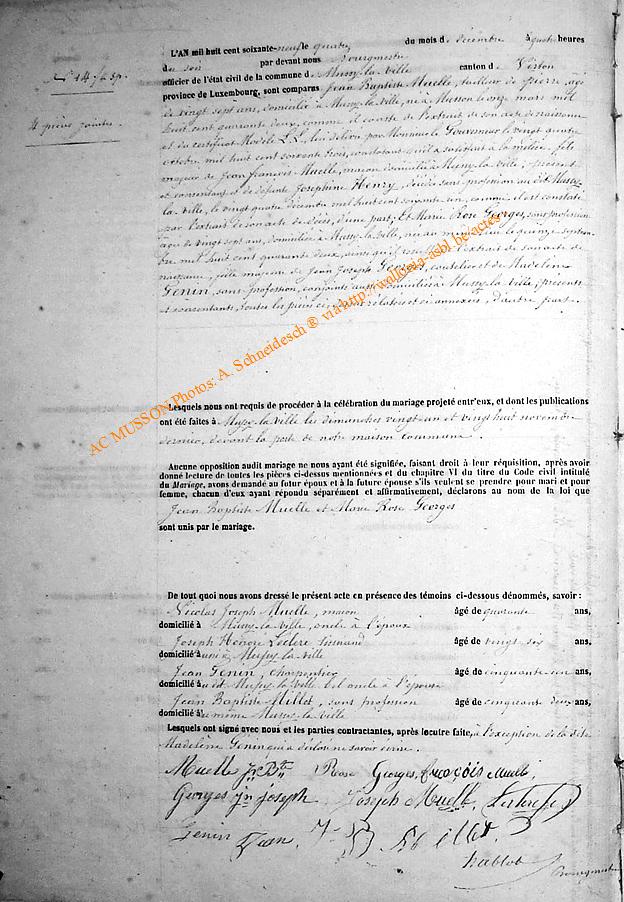 N° 14 
4 pièces jointes
L'AN mil huit cent soixante-neuf le quatre du mois de décembre à quatre heures
du soir par devant nous Bourgmestre
officier de l'état civil de la commune de Mussy-la-Ville canton de Virton
province de Luxembourg, sont comparus Jean Baptiste Muelle, tailleur de pierre, âgé
de vingt sept ans, domicilié à Mussy-la-Ville, né à Musson le onze mars mil
huit cent quarante deux, comme il conste de l'extrait de son acte de naissance
et du certificat Modèle L.L. lui délivré par Monsieur le Gouverneur le vingt quatre
octobre mil huit cent soixante trois, constatant qu'il a satisfait à la milice, fils
majeur de Jean François Muelle, maçon domicilié à Mussy-la-Ville, présent
et consentant et de défunte Joséphine Henry, décédée sans profession au dit Mussy-
la-Ville, le vingt quatre décembre mil huit cent soixante un, comme il est constaté
par l'extrait de son acte de décès, d'une part; Et Marie Rose Georges, sans profession
âgée de vingt sept ans, domiciliée à Mussy-la-Ville, née au même lieu le quinze septem-
bre mil huit cent quarante deux, ainsi qu'il résulte de l'extrait de son acte de
naissance, fille majeure de Jean Joseph Georges, et de Madeleine
Genin, sans profession, conjoints aussi domiciliés à Mussy-la-Ville, présents
et consentants, toutes les pièces ci-dessus relatées et ci annexées, d'autre part.
AC MUSSON Photos: A. Schneidesch ® via http://wallonia-asbl.be/actes
Lesquels nous ont requis de procéder à la célébration du mariage projeté entr'eux, et dont les publications
ont été faites à Mussy-la-Ville les dimanches vingt-un et vingt huit novembre
dernier, devant la porte de notre maison commune.
Aucune opposition audit mariage ne nous ayant été signifiée, faisant droit à leur réquisition, après avoir
donné lecture de toutes les pièces ci-dessus mentionnées et du chapitre VI du titre du Code civil intitulé
du Mariage, avons demandé au futur époux et à la future épouse s'ils veulent se prendre pour mari et pour
femme, chacun d'eux ayant répondu séparément et affirmativement, déclarons au nom de la loi que
Jean Baptiste Muelle et Marie Rose Georges
sont unis par le mariage.
De tout quoi nous avons dressé le présent acte en présence des témoins ci-dessous dénommés, savoir :
Nicolas Joseph Muelle, maçon âgé de quarante ans,
domicilié à Mussy-la-Ville, oncle à l'époux
Joseph Honoré Leclere âgé de vingt six ans,
domicilié à Mussy-la-Ville
Jean Genin, charpentier âgé de cinquante un ans,
domicilié au dit Mussy-la-Ville bel oncle à l'épouse
Jean Baptiste Millet, sans profession âgé de cinquante deux ans,
domicilié à même Mussy-la-Ville
Lesquels ont signé avec nous et les parties contractantes, après lecture faite, à l'exception de la dite
Madeleine Genin qui a déclaré ne savoir écrire.
Muelle Jn Bte Rose Georges, françois Muelle,
Georges jn joseph Joseph Muelle
Genin Jean. J-B Millet.
Bourgmestre